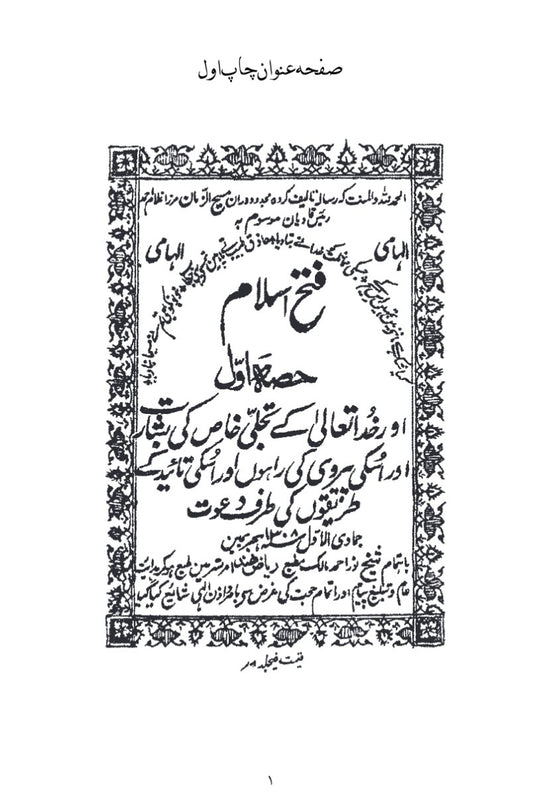 صفحہ عنوان چاپ اول
الحمد للہ والمنت کہ رسالہ تالیف کردہ مجدد دوران مسیح الزمان مرزا غلام احمد
رئیس قادیان موسوم بہ
الہامی
الہامی
فتح اسلام
حصہ اوّل
اور خدا تعالیٰ کے تجلّی خاص کی بشارت
اور اسکی پیروی کی راہوں اور اسکی تائید کے
طریقوں کی طرف دعوت
جمادی الاول ۱۳۰۸ ہجری میں
باہتمام شیخ نور احمد مالک مطبع ریاض ہند امرتسر میں طبع ہو کر ہدایت
عام و تبلیغ پیام اور اتمام حجت کی غرض سی باخراذن الٰہی شائع کیا گیا
قیمت فیجلد
۱